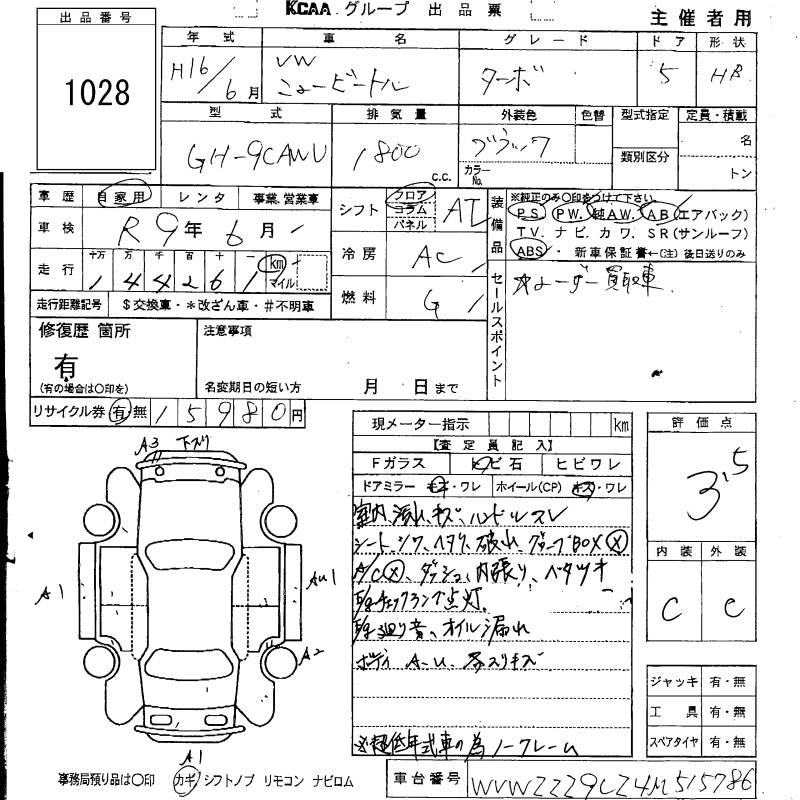 KCAA グループ 出品票
主催者用
出品番号
1028
年式 車名 グレード ドア 形状
H16/6月 VW ニュービートル ターボ 5 HB
型式 排気量 外装色 色替 型式指定 定員・積載
GH-9CAWU 1800 c.c. ブラック カラーNo. 類別区分 名 トン
車歴 自家用 レンタ 事業、営業車
車検 R9年6月
走行 十万 万 千 百 十 一 km マイル
144261
走行距離記号 $交換車・*改ざん車・#不明車
シフト フロア コラム パネル AT
冷房 AC
燃料 G
装備品 ※純正のみ○印をつけて下さい
PS. PW. 純AW. AB(エアバック)
TV. ナビ. カワ. SR(サンルーフ)
ABS・新車保証書←(注)後日送りのみ
セールスポイント
☆ユーザー買取車
修復歴 箇所
有
(有の場合は○印を)
注意事項
名変期日の短い方 月 日まで
リサイクル券 有 無 15980円
現メーター指示 km
【査定員記入】
Fガラス トビ石 ヒビワレ
ドアミラー キズ・ワレ ホイール(CP) キズ・ワレ
室内、汚れ、キズ、ハンドルスレ
シート、シワ、ヘタリ、破れ、グローブBOX ×
A/C ×、ダッシュ、内張り、ベタツキ
E/gチェックランプ点灯.
E/g廻り音、オイル漏れ
ボディ A-U、スリキズ
※超低年式車の為ノークレーム
評価点
3.5
内装 外装
C C
ジャッキ 有・無
工具 有・無
スペアタイヤ 有・無
A3 下スリ
A1
AU1
A2
A1
事務局預り品は○印 カギ シフトノブ リモコン ナビロム
車台番号 WVWZZZ9CZ4M515786